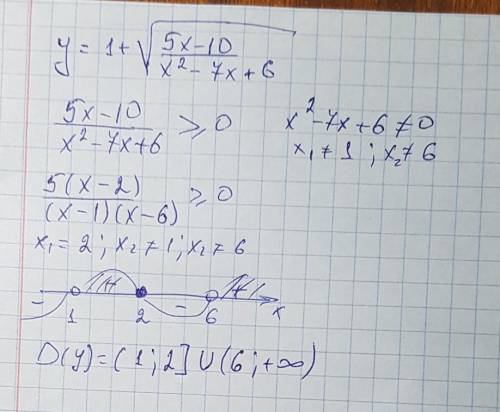 y = 1 + √((5x-10)/(x² - 7x + 6))
(5x-10)/(x² - 7x+6) ≥ 0
x² - 7x + 6 ≠ 0
x₁ ≠ 1 ; x₂ ≠ 6
5(x-2)/((x-1)(x-6)) ≥ 0
x₁ = 2 ; x₂ ≠ 1 ; x₂ ≠ 6
- + - + x
1 2 6
D(y) = (1 ; 2] ∪ (6 ; +∞)